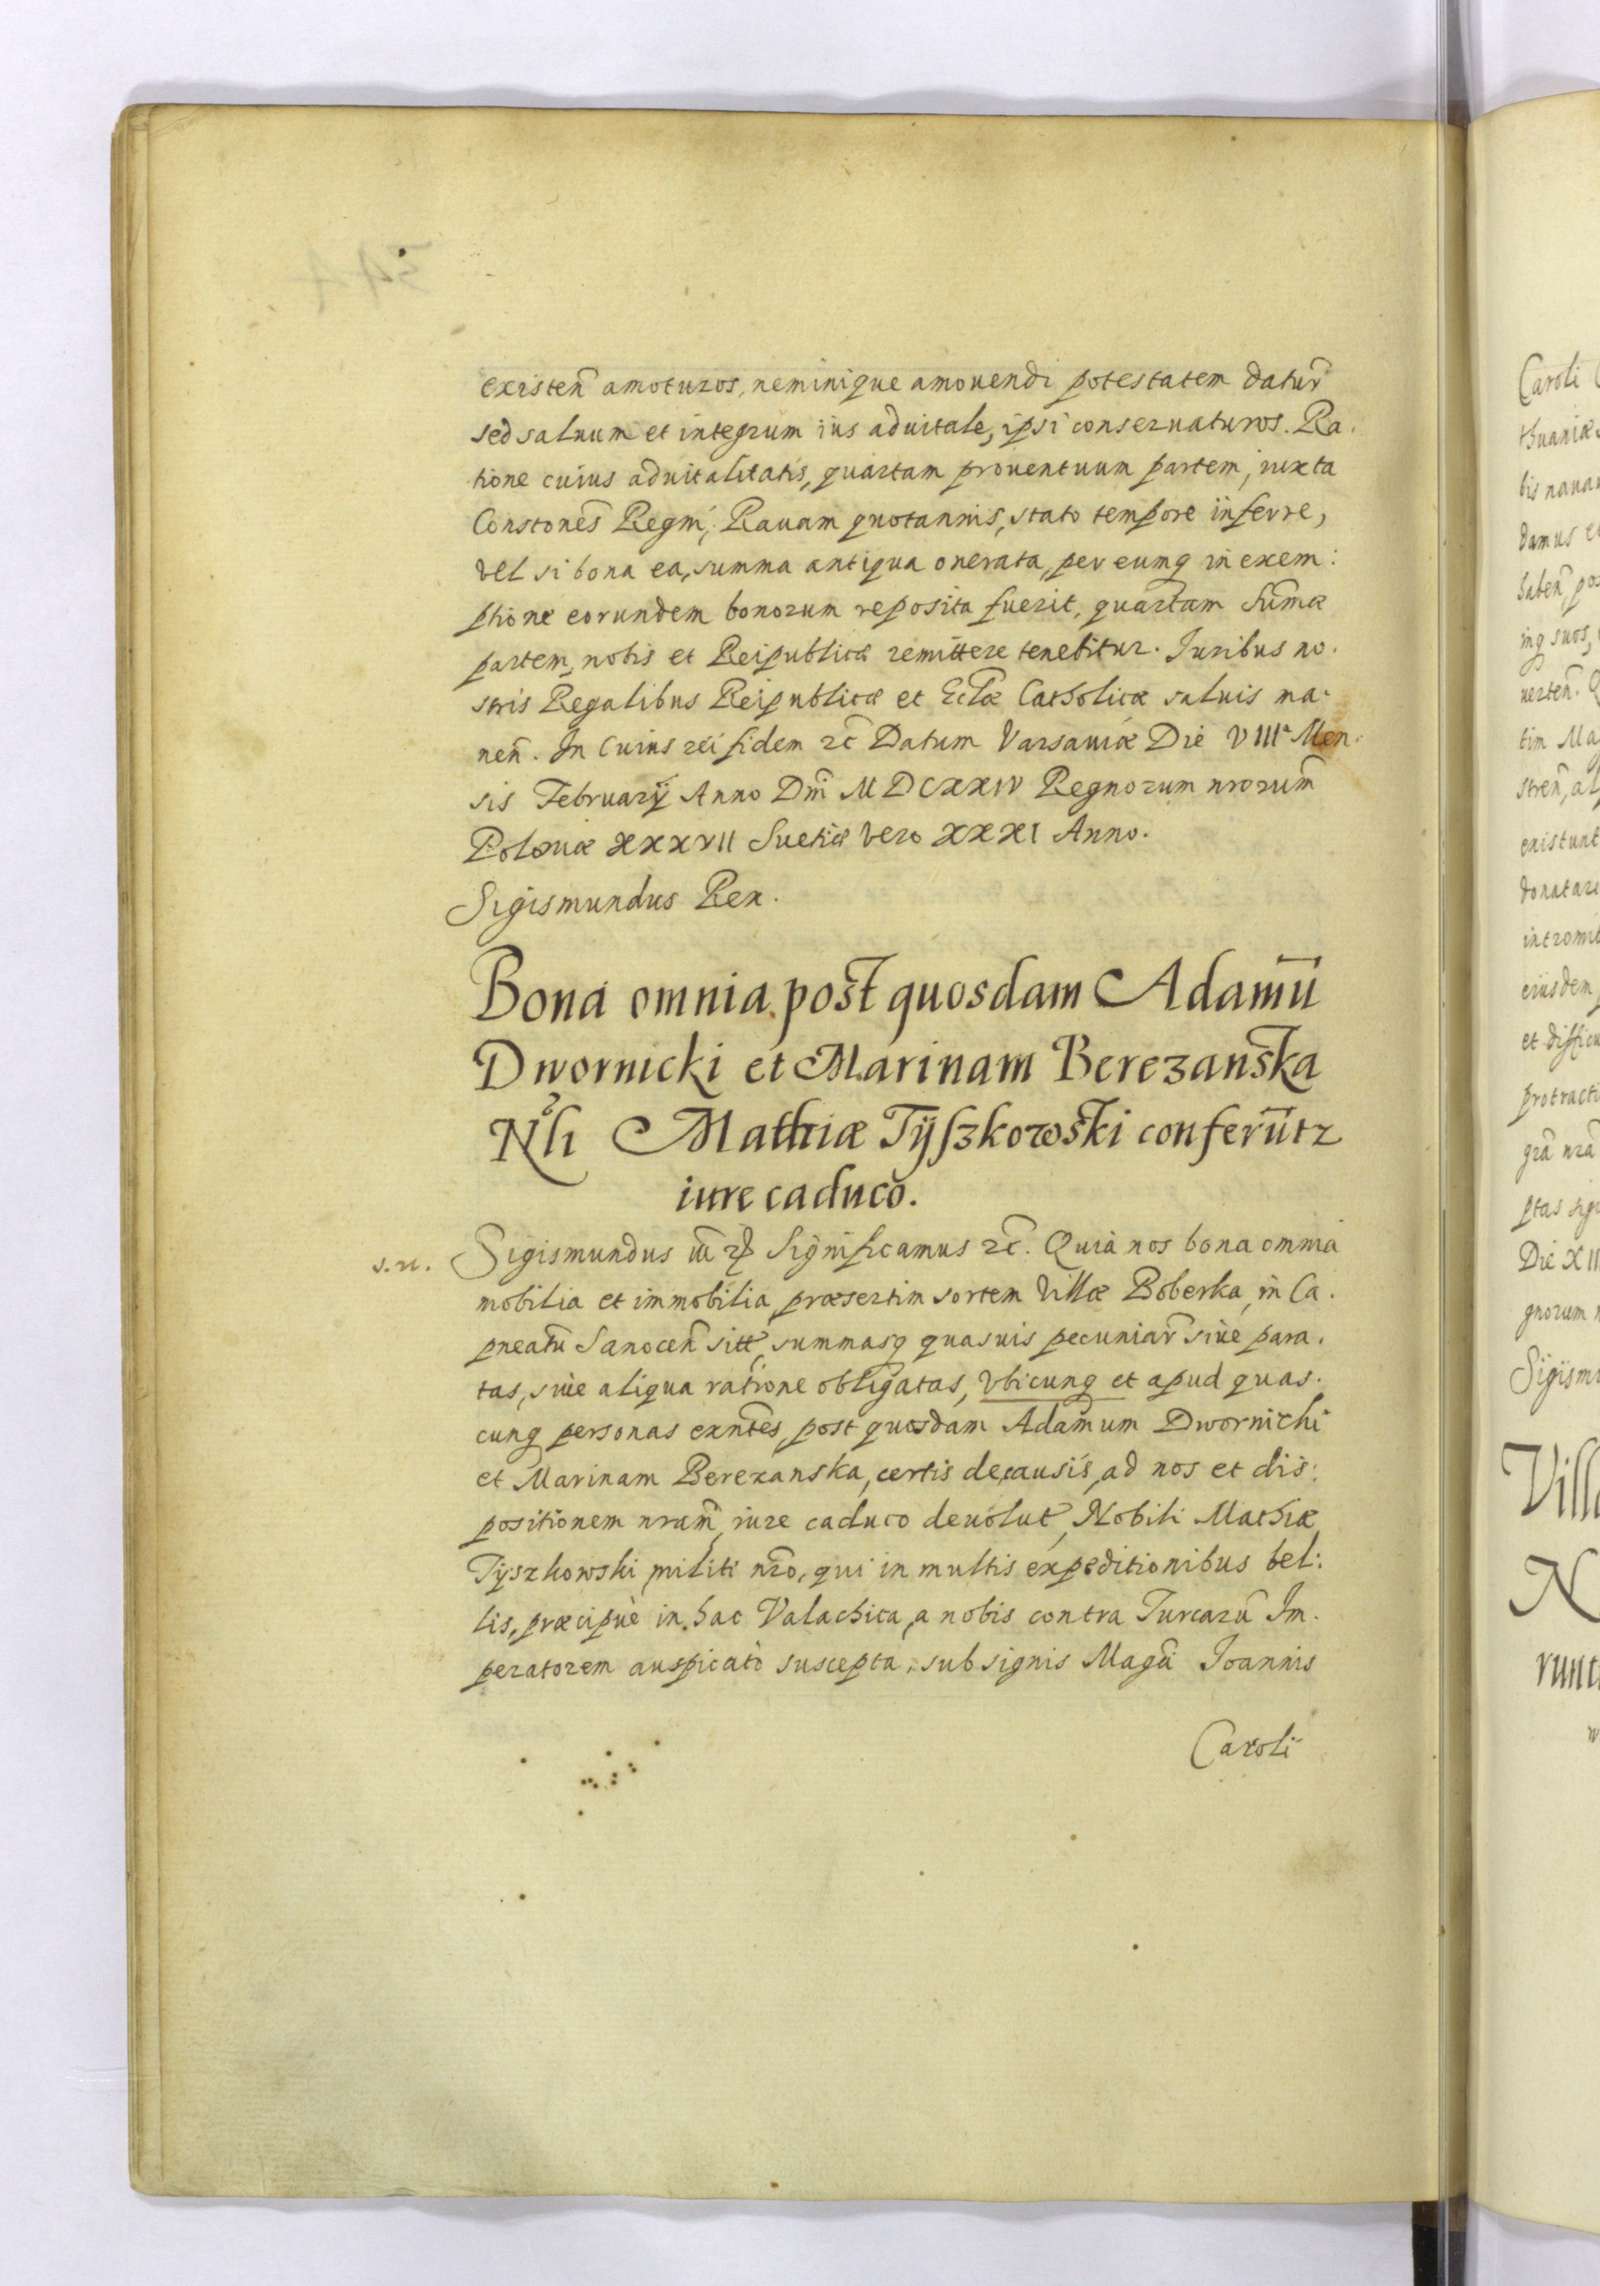 existen̄ amoturos, neminique amouendi potestatem datur̄
sed saluum et integrum ius aduitale, ipsi conseruaturos. Ra.
tione cuius aduitalitatis, quartam prouentuum partem, iuxta
Constones̄ Regni, Rauam quotannis, stato tempore inferre,
vel si bona ea, summa antiqua onerata, per eumq in exem:
ptione eorundem bonorum reposita fuerit, quartam sum̄æ
partem, nobis et Reipublicæ remittere tenebitur. Iuribus no.
stris Regalibus Reipublicæ et Eclǣ Catholicæ saluis ma.
nen̄. In cuius rei fidem ꝛc̄ Datum Varsauiæ Die VIIIᵃ Men.
sis Februarÿ Anno Dm̄ MDCXXIV Regnorum nrorum̄
Poloniæ XXXVII Sueticæ vero XXXI Anno.
Sigismundus Rex.
Bona omnia post quosdam Adamū
Dwornicki et Marinam Berezanska
Nli Mathiæ Tÿszkowski conferūtr
iure caduco.
s. n. Sigismundus Significamus ꝛc̄. Quia nos bona omnia
mobilia et immobilia, præsertim sortem villæ Boberka, in Ca.
pneatū Sanocen̄ sitt, summasq quasuis pecuniar̄ siue para.
tas, siue aliqua ratione obligatas, vbicunq et apud quas.
cunq personas exn̄tes, post quosdam Adamum Dwornichi
et Marinam Berezanska, certis de causis, ad nos et dis:
positionem nram̄ iure caduco deuolut, Nobili Mathiæ
Tyszkowski militi nr̄o, qui in multis expeditionibus bel:
lis, præcipuè in hac Valachica, a nobis contra Turcarū Im.
peratorem auspicatò suscepta, sub signis Magci̅ Ioannis
Caroli
Caroli
thuaniæ
bis naua
damus et
haben̄, po
inq suos,
uerten̄.
tim Ma
stren̄, al
existunt
donatar
intromi
eiusdem
et difficu
protracti
gr̄a nr̄a
ptas sigi
Die XII
gnorum
Sigism
Vill
N
runt